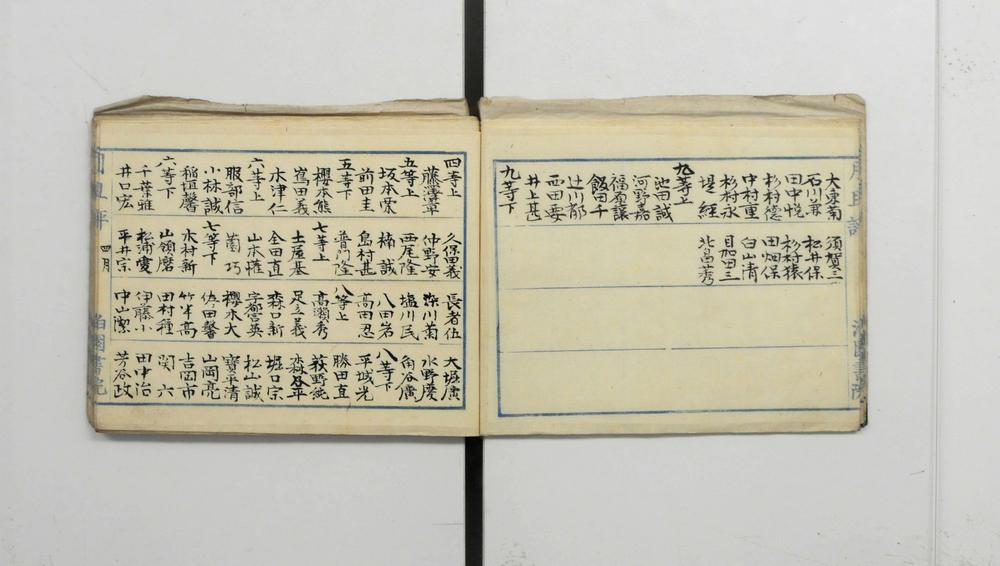 月旦評
泊園書院
大東菊
石川
田中悦
杉村徳
中村重
杉村永
堤経
九等上
池田誠
河野嘉
福原讓
飯田千
辻川郁
西田要
井上甚
九等下
須賀三
松井保
杉村猿
田畑保
臼山清
目加田三
北畠秀
四等上
藤澤章
五等上
坂本
前田圭
五等下
櫻本熊
窪田義
木津仁
六等上
服部信
小林誠
稲垣馨
六等下
千葉雅
井口宏
久保田義
仲野安
西尾隆
楠誠
島村甚
普門隆
七等上
土屋基
金田直
山本
薗巧
七等下
木村新
山領磨
松浦愛
平井宗
長者伍
深川菊
塩川民
八田岩
高田忍
八等上
高瀬秀
足立義
森口新
宇都英
櫻木大
佐田馨
竹中高
田村種
伊藤小
中山潔
大堀廣
水野慶
角谷廣
八等下
平城光
勝田直
荻野純
森平
堀口宗
松山誠
寶平清
山岡亮
吉岡市
関六
田中治
芳谷政
月旦評
四月
泊園書院